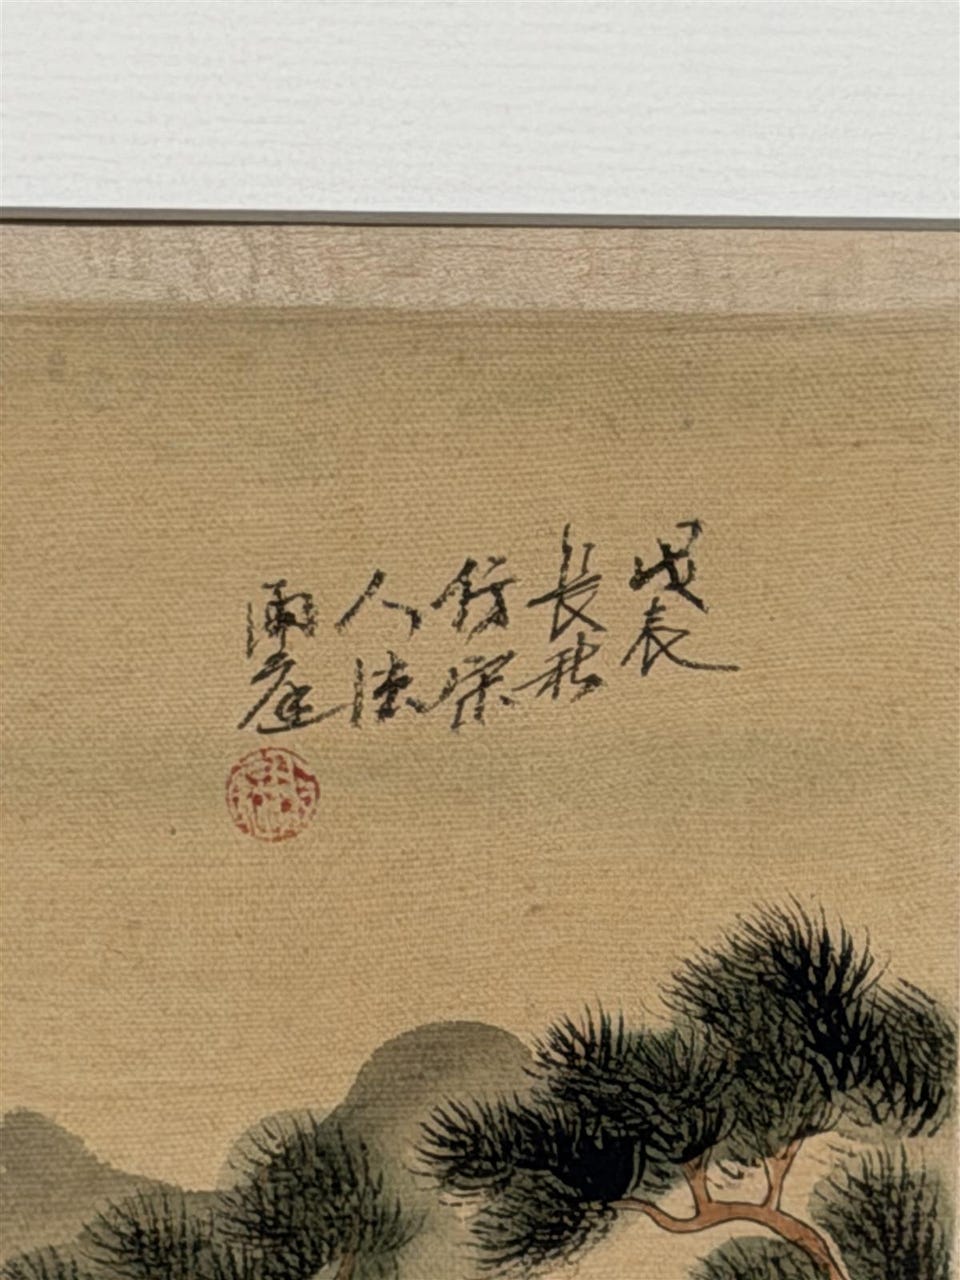 戊辰
長秋
仿宋
人法
雨庭